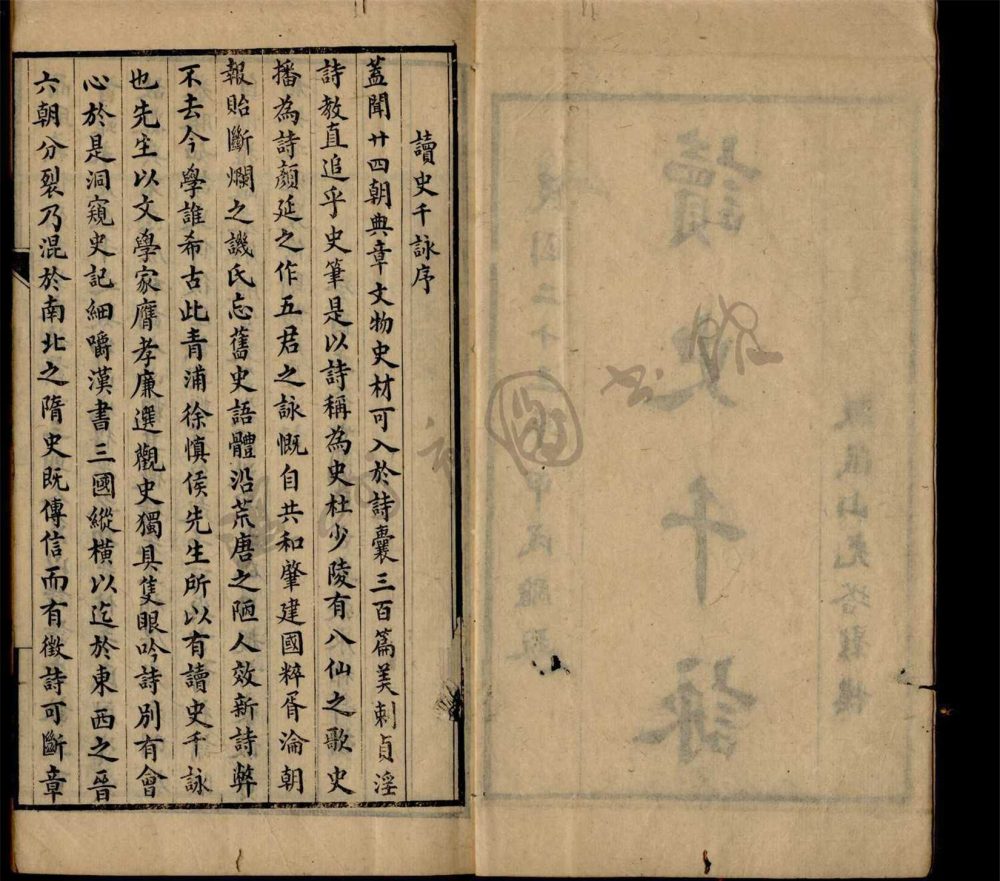 讀史千詠
讀史千詠序
蓋聞廿四朝典章文物史材可入於詩囊三百篇美刺貞淫
詩教直追乎史筆是以詩稱為史杜少陵有八仙之歌史
播為詩顏延之作五君之詠慨自共和肇建國粹胥淪朝
報貽斷爛之譏氏忘舊史語體沿荒唐之陋人效新詩弊
不去今學誰希古此青浦徐慎侯先生所以有讀史千詠
也先生以文學家膺孝廉選觀史獨具隻眼吟詩別有會
心於是洞窺史記細嚼漢書三國縱橫以迄於東西之晉
六朝分裂乃混於南北之隋史既傳信而有徵詩可斷章